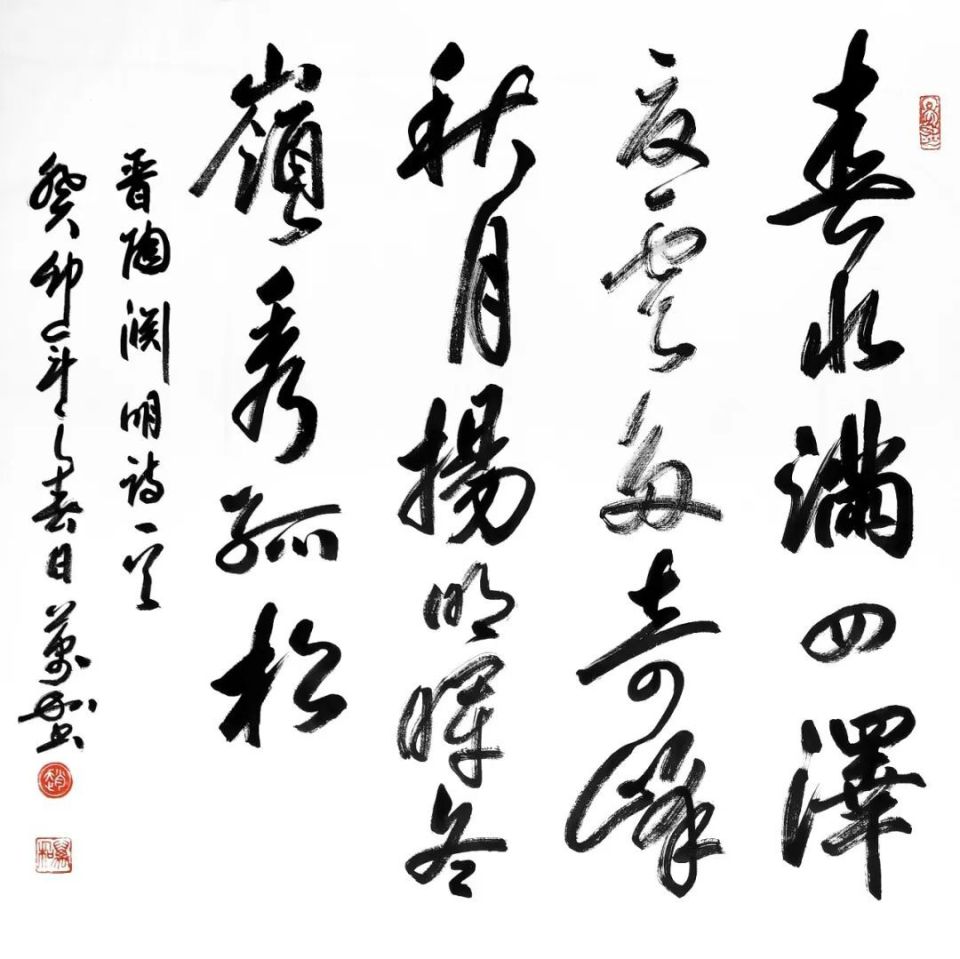 春水滿四澤
夏雲多奇峰
秋月揚明暉冬
嶺秀孤松
晋陶淵明詩一首
癸卯年之春日萬和書
趙
萬和